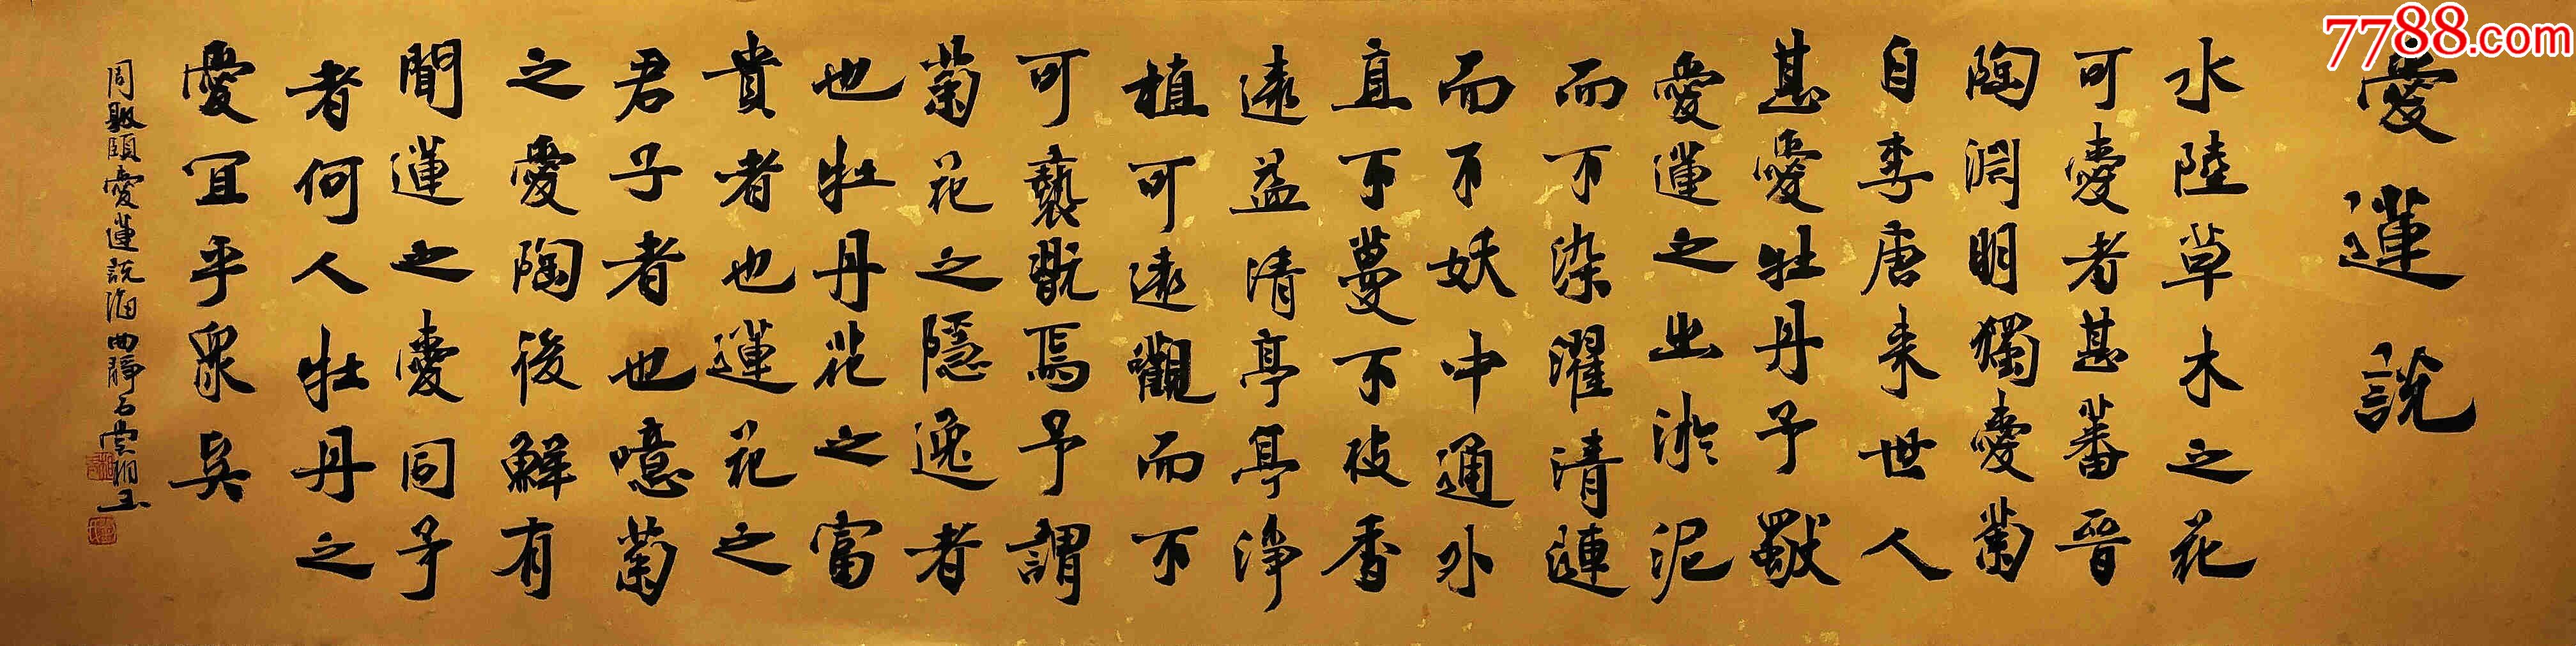 愛蓮說
水陸草木之花
可愛者甚蕃晉
陶淵明獨愛菊
自李唐来世人
甚愛牡丹予獨
愛蓮之出淤泥
而不染濯清漣
而不妖中通外
直不蔓不枝香
遠益清亭亭淨
植可遠觀而不
可褻翫焉予謂
菊花之隱逸者
也牡丹花之富
貴者也蓮花之
君子者也噫菊
之愛陶後鮮有
聞蓮之愛同予
者何人牡丹之
愛宜乎眾矣
周敦頤愛蓮說海曲靜石堂相玉
7788.com